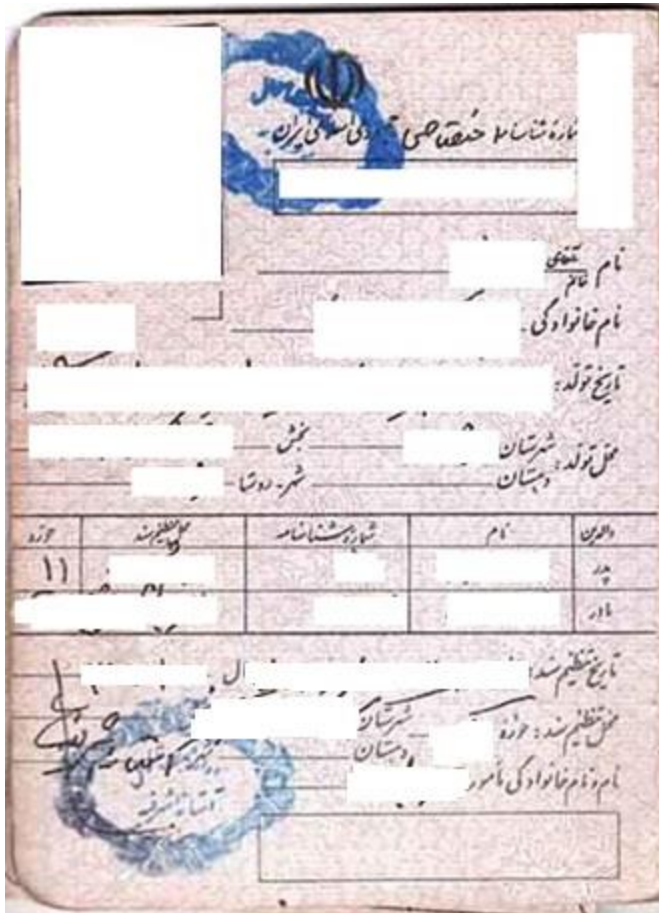 شماره شناسائی اختصاصی جمهوری اسلامی ایران
نام آقای خانم
نام خانوادگی
تاریخ تولد:
محل تولد: شهرستان بخش
دهستان شهر - روستا
والدین نام شماره شناسنامه محل تنظیم سند حوزه
پدر ۱۱
مادر
تاریخ تنظیم سند:
محل تنظیم سند: حوزه شهرستان
دهستان
نام و نام خانوادگی مأمور
آستانه اشرفیه